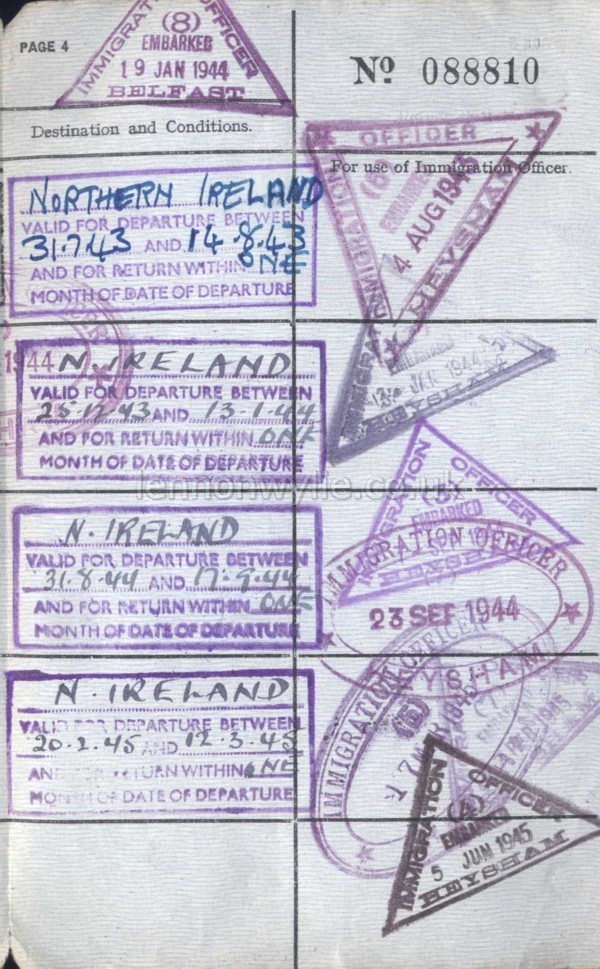 PAGE 4
IMMIGRATION OFFICER
(8)
EMBARKED
19 JAN 1944
BELFAST
Nº 088810
Destination and Conditions.
For use of Immigration Officer.
NORTHERN IRELAND
VALID FOR DEPARTURE BETWEEN
31.7.43 AND 14.8.43
AND FOR RETURN WITHIN ONE
MONTH OF DATE OF DEPARTURE
IMMIGRATION OFFICER
(6)
EMBARKED
4 AUG 1943
HEYSHAM
1944
N. IRELAND
VALID FOR DEPARTURE BETWEEN
25.12.43 AND 13.1.44
AND FOR RETURN WITHIN ONE
MONTH OF DATE OF DEPARTURE
IMMIGRATION
EMBARKED
JAN 1944
HEYSHAM
lennonwylie.co.uk
N. IRELAND
VALID FOR DEPARTURE BETWEEN
31.8.44 AND 17.9.44
AND FOR RETURN WITHIN ONE
MONTH OF DATE OF DEPARTURE
IMMIGRATION OFFICER
EMBARKED
HEYSHAM
IMMIGRATION OFFICER
23 SEP 1944
HEYSHAM
N. IRELAND
VALID FOR DEPARTURE BETWEEN
20.2.45 AND 12.3.45
AND FOR RETURN WITHIN ONE
MONTH OF DATE OF DEPARTURE
IMMIGRATION OFFICER
(6)
MAR 1945
IMMIGRATION OFFICER
(4)
EMBARKED
5 JUN 1945
HEYSHAM